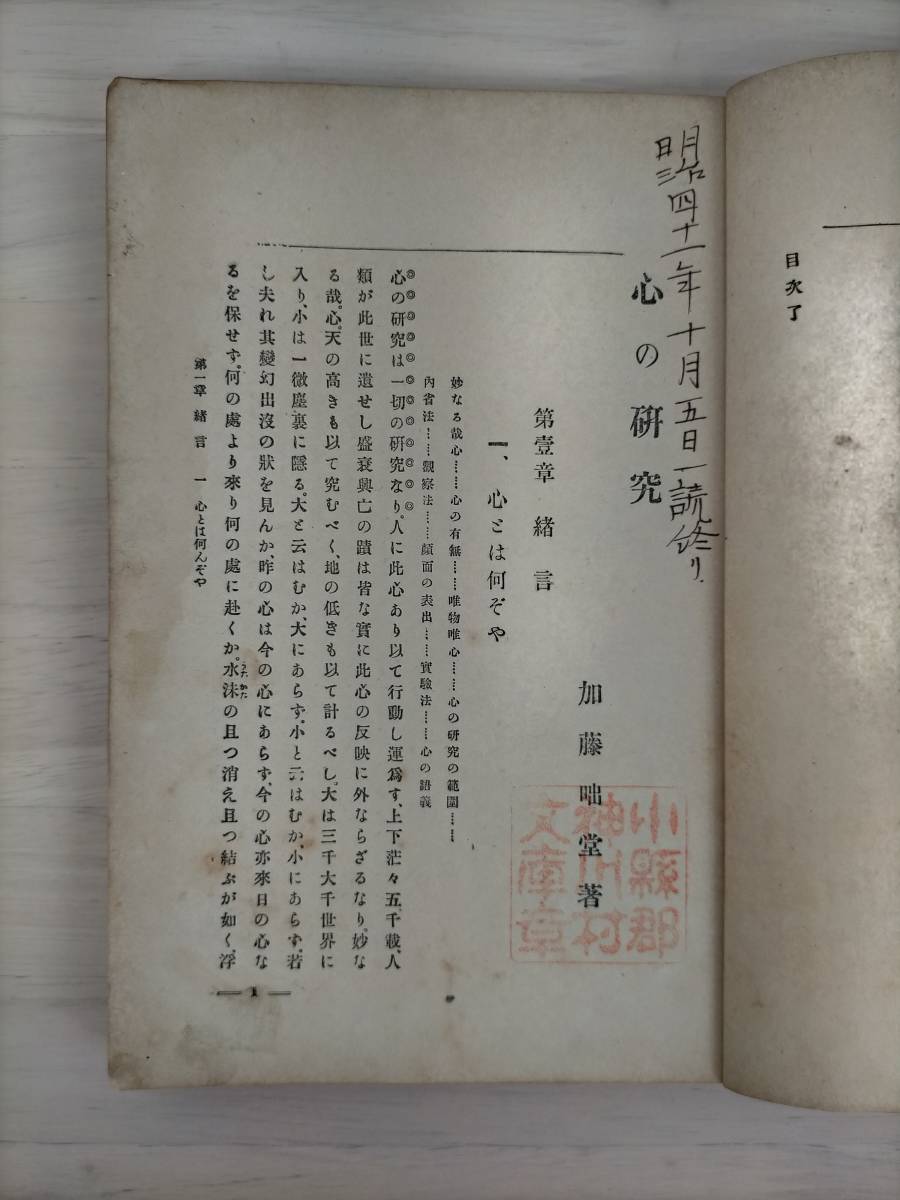 目次了
明治四十一年十月五日一読終リ
心の研究
加藤咄堂著
小縣郡
神川村
文庫章
第壹章 緒言
一、心とは何ぞや
妙なる哉心……心の有無……唯物唯心……心の研究の範圍……
內省法……觀察法……顏面の表出……實驗法……心の語義
心の研究は一切の研究なり。人に此心あり以て行動し運爲す、上下茫々五千載、人
類が此世に遺せし盛衰興亡の蹟は皆な實に此心の反映に外ならざるなり。妙な
る哉。心。天の高きも以て究むべく、地の低きも以て計るべし。大は三千大千世界に
入り、小は一微塵裏に隱る。大と云はむか、大にあらず、小と云はむか、小にあらず。若
し夫れ其變幻出沒の狀を見んか、昨の心は今の心にあらず、今の心亦來日の心な
るを保せず。何の處より來り何の處に赴くか。水沫の且つ消え且つ結ぶが如く、浮
うたかた
第一章 緒言 一 心とは何んぞや
1